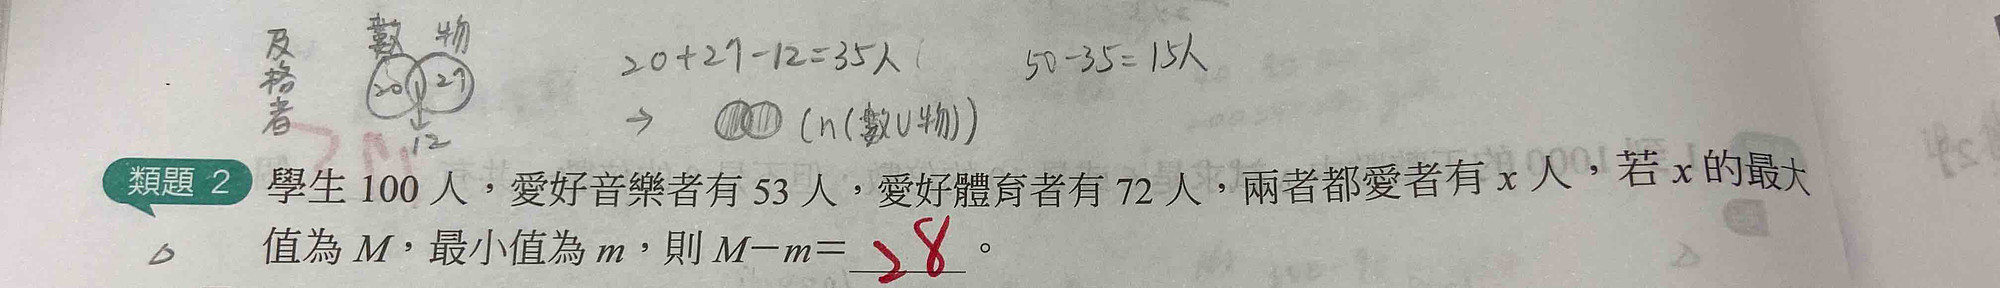 及格者
數 物
20 27
12
20+27-12=35人
50-35=15人
→ (n(數∪物))
類題 2 學生 100 人，愛好音樂者有 53 人，愛好體育者有 72 人，兩者都愛者有 x 人，若 x 的最大
值為 M，最小值為 m，則 M－m＝28。